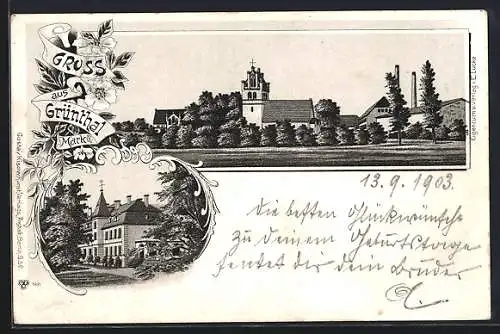 GRUSS
aus
Grünthal
Mark
Eigenthum u. Verlag E. Lucke
13. 9. 1903.
Die besten Glückwünsche
zu deinem Geburtstage
sendet dir dein Bruder